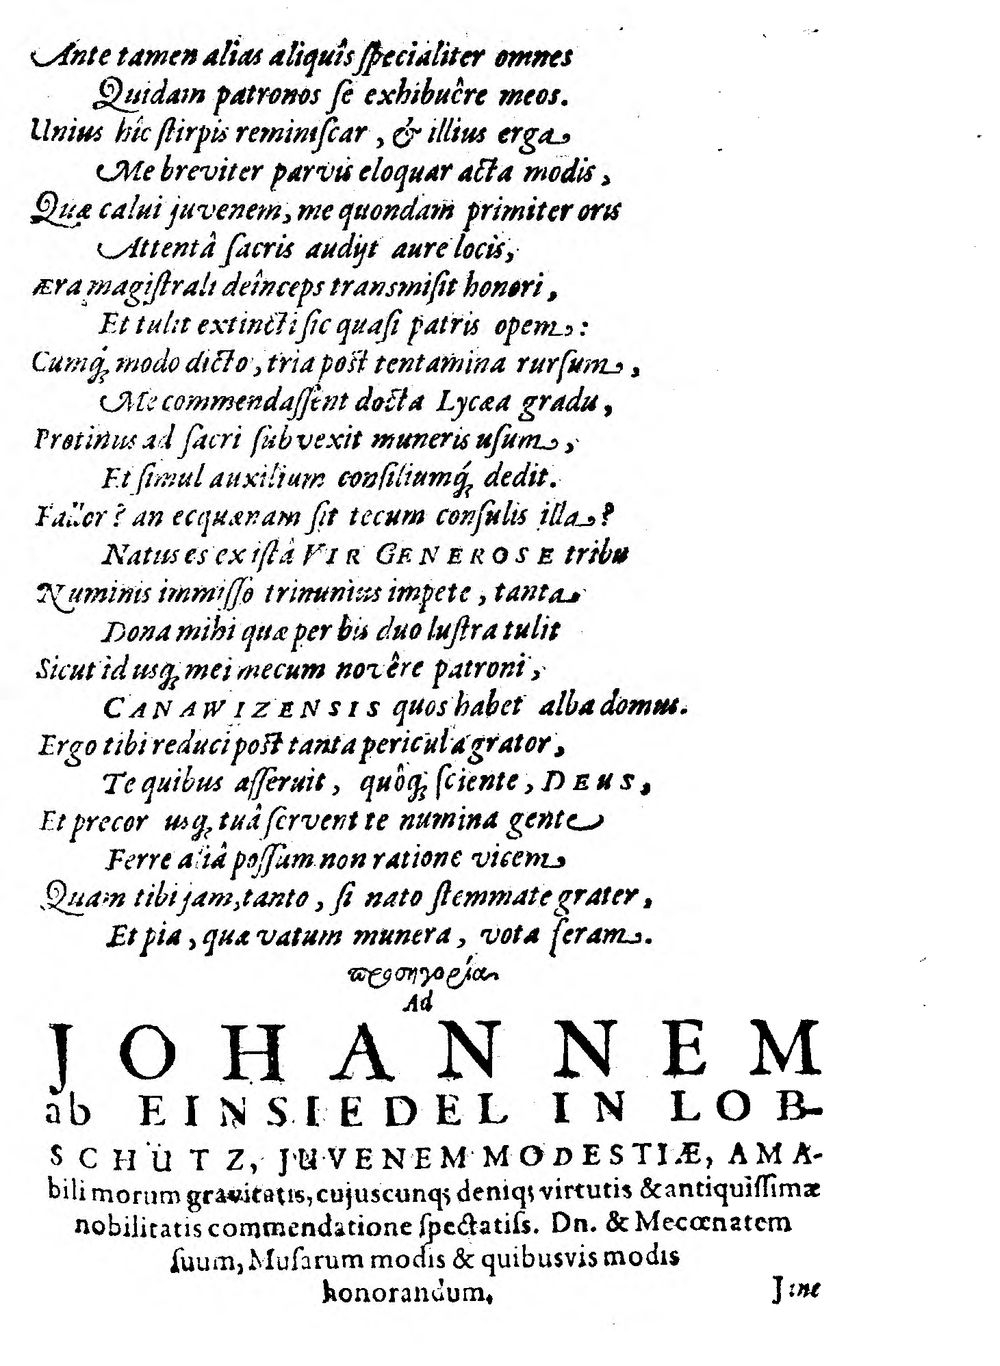 Ante tamen alias aliquîs ſpecialiter omnes
Quidam patronos ſe exhibuêre meos.
Unius hîc ſtirpis reminiſcar, & illius erga
Me breviter parvis eloquar acta modis,
Quæ calui juvenem, me quondam primiter oris
Attentâ ſacris audijt aure locis,
Æra magiſtrali deînceps transmiſit honori,
Et tulit extincti ſic quaſi patris opem:
Cumq́; modo dicto, tria poſt tentamina rurſum,
Me commendaſſent docta Lycæa gradu,
Protinus ad ſacri ſubvexit muneris uſum,
Et ſimul auxilium conſiliumq́; dedit.
Fallor? an ecquænam ſit tecum conſulis illa?
Natus es ex iſtâ VIR GENEROSE tribu
Numinis immiſſo trinunius impete, tanta
Dona mihi quæ per bis duo luſtra tulit
Sicut id usq; mei mecum novêre patroni,
CANAWIZENSIS quos habet alba domus.
Ergo tibi reduci poſt tanta pericula grator,
Te quibus aſſeruit, quôq; ſciente, DEUS,
Et precor usq; tuâ ſervent te numina gente
Ferre aliâ poſſum non ratione vicem
Quam tibi jam, tanto, ſi nato ſtemmate grater,
Et pia, quæ vatum munera, vota feram.
προσηγορία
Ad
JOHANNEM
ab EINSIEDEL IN LOB-
SCHÜTZ, JUVENEM MODESTIÆ, AMA-
bili morum gravitatis, cujuscunq; deniq; virtutis & antiquiſſimæ
nobilitatis commendatione ſpectatiſs. Dn. & Mecœnatem
ſuum, Muſarum modis & quibusvis modis
honorandum,
Jine